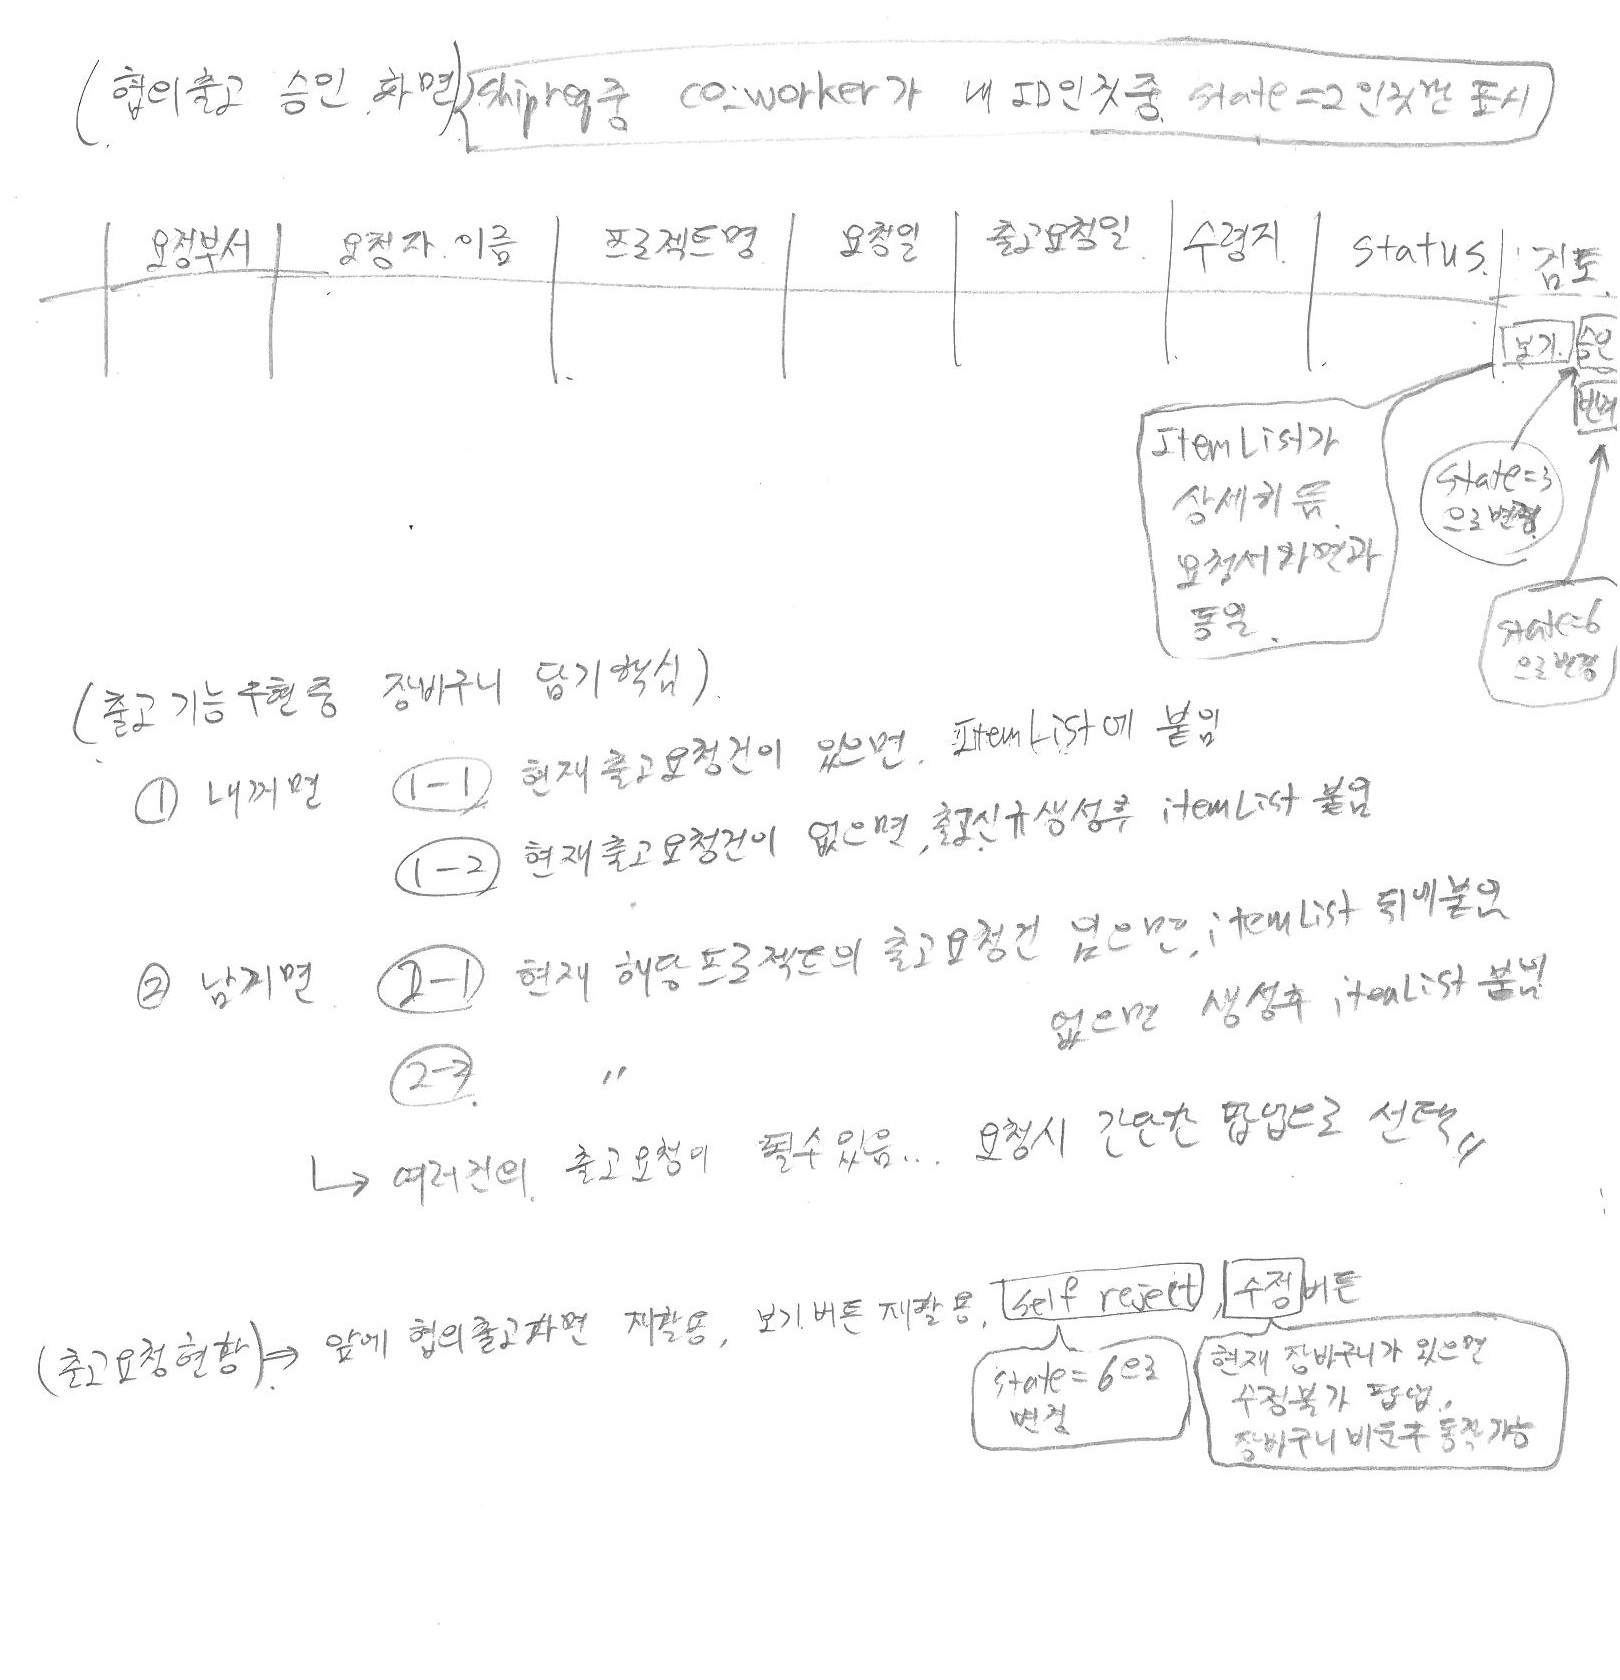 (협의출고 승인 화면) shipreq중 co-worker가 내 ID인것중 state=2인것만 표시
요청부서 요청자 이름 프로젝트명 요청일 출고요청일 수령지 status 검토
보기 승인
반려
ItemList가
상세히 뜸.
요청서화면과
동일.
state=3
으로변경
state=6
으로변경
(출고기능구현중 장바구니 담기핵심)
① 내꺼면 1-1 현재출고요청건이 있으면. ItemList에 붙임
1-2 현재출고요청건이 없으면, 출고신규생성후 itemList 붙임
② 남꺼면 2-1 현재 해당프로젝트의 출고요청건 있으면, itemList 뒤에붙임
없으면 생성후 itemList 붙임
2-2 〃
↳ 여러건의 출고요청이 될수있음... 요청시 간단한 팝업으로 선택〃
(출고요청현황)⇒ 앞에 협의출고화면 재활용, 보기버튼 재활용, self reject, 수정버튼
state=6으로
변경
현재 장바구니가 있으면
수정불가 팝업.
장바구니 비운후 동작가능